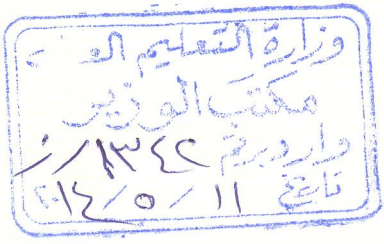 وزارة التعليم العـ
مكتب الوزير
وارد برقم ١٣٤٢/ز
تاريخ ١١/٥/٢٠١٤